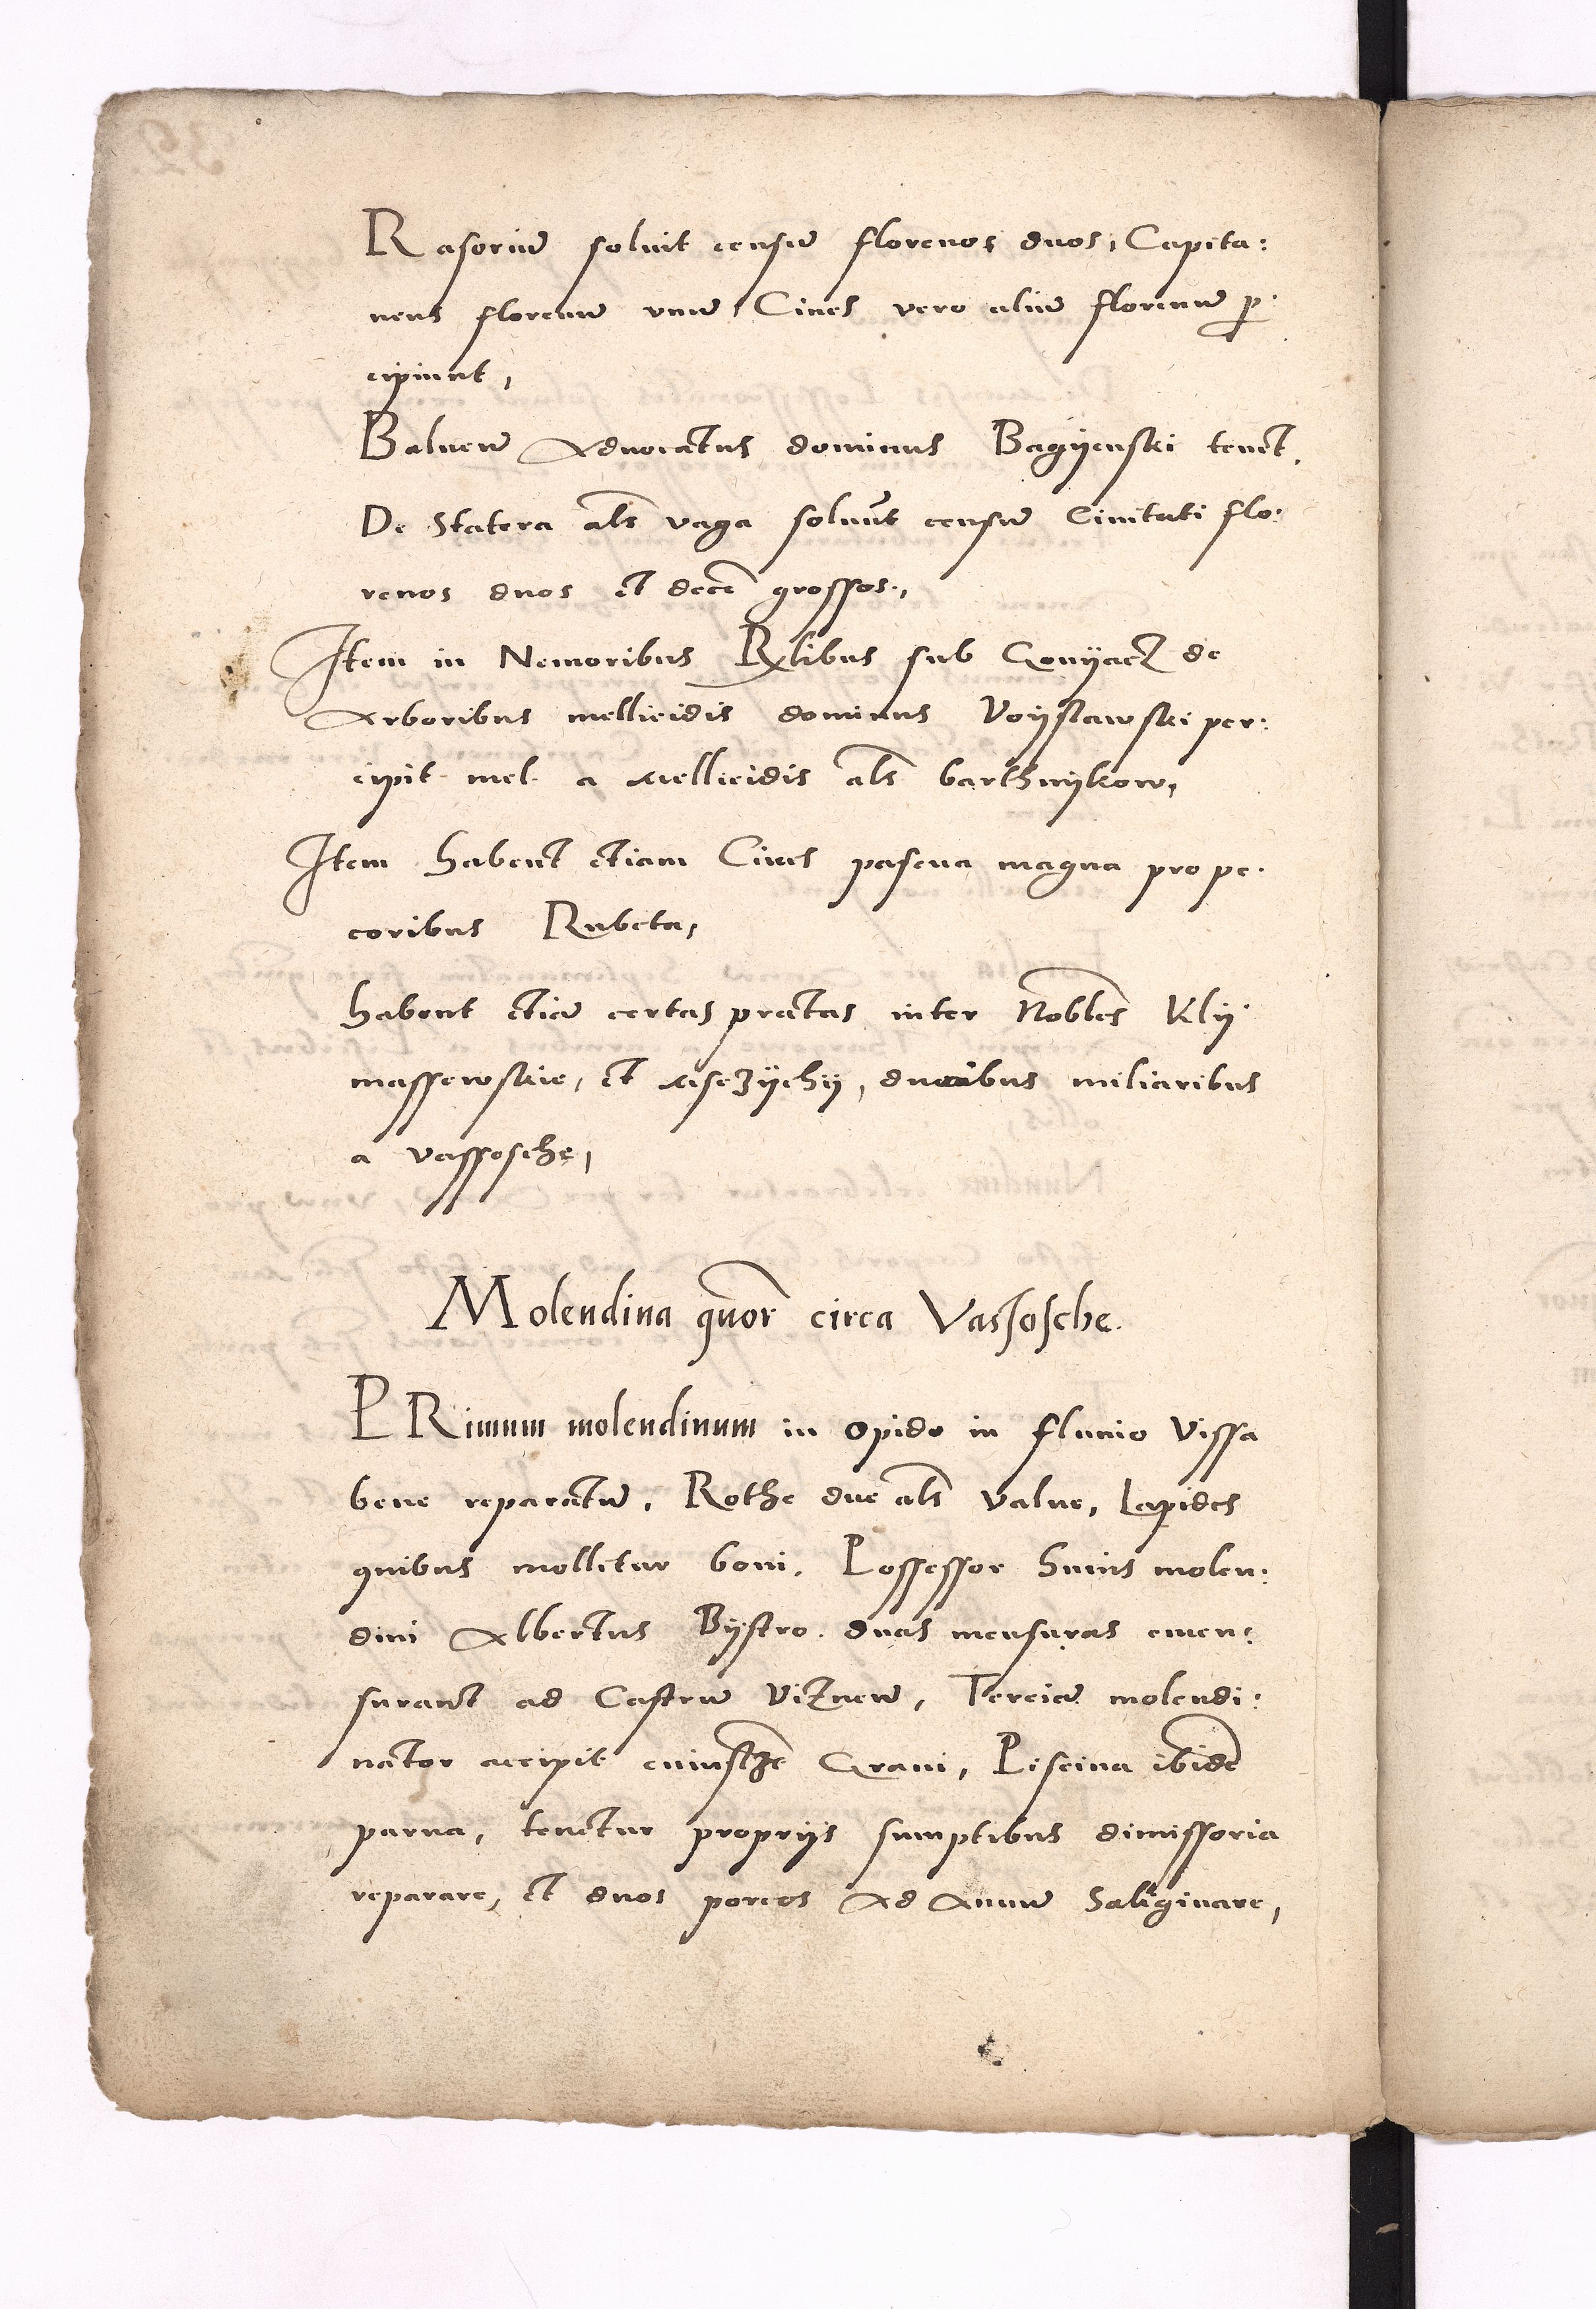 Rasoriū soluit censū florenos duos, Capita:
neus florenū vnū, Ciues vero aliū florenū ꝑ:
cipiunt,
Balneū Aduocatus dominus Bagÿenski tenet.
De Statera als̄ vaga soluūt censū Ciuitati flo:
renos duos et decē grossos.,
Item in Nemoribus Rx̄libus sub Gonÿacz de
Arboribus mellicidis dominus Voÿslawski per:
cipit mel a Mellicidis als̄ barthnÿkow,
Item habent etiam Ciues pascua magna pro pe:
coribus Rubeta,
habent etiā certas pratas inter Nobl̄es Klÿ
massewskie, et Msczÿchÿ, duobus miliaribus
a vassosche,
Molendina quor̄ circa Vassosche.
PRimum molendinum in opido in fluuio Vissa
bene reparatū, Rothe due als̄ value, Lapides
quibus mollitur boni, Possessor huius molen:
dini Albertus Bÿstro. duas mensuras emen:
surant ad Castrū Viznen̄, Terciā molendi:
nator accipit cuiuscꝫ̄ Grani, Piscina ibidē
parua, tenetur proprijs sumptibus dimissoria
reparare, et duos porcos Ad Annū Saliginare,